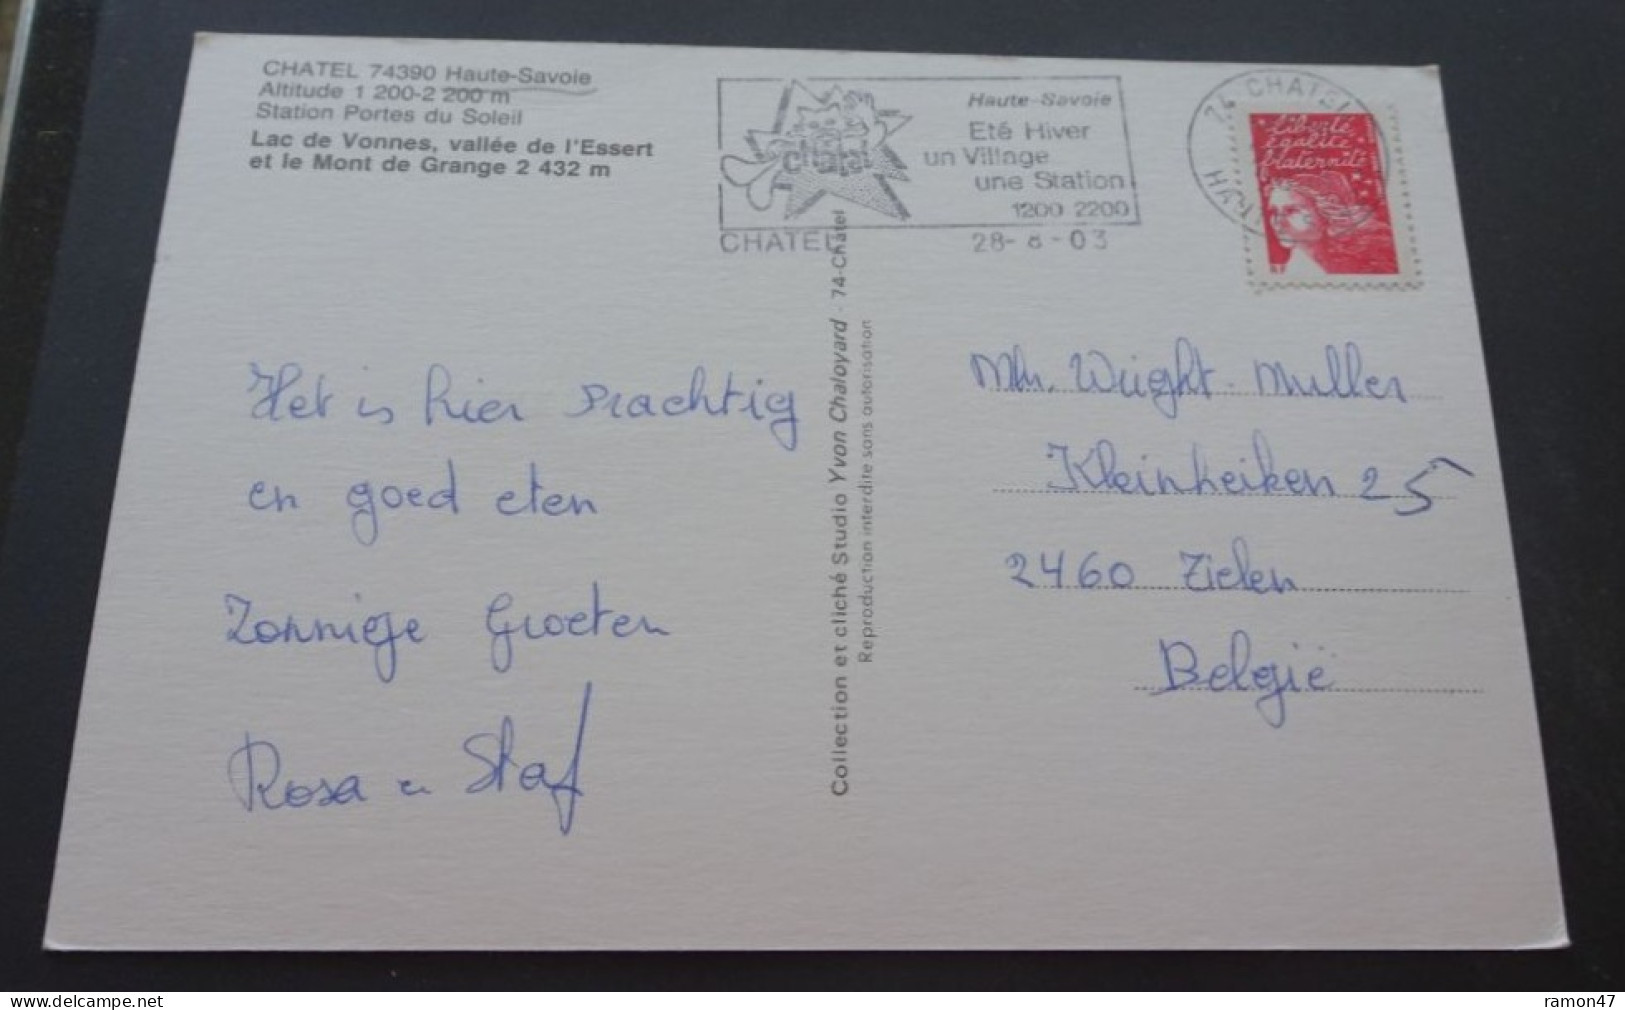 CHATEL 74390 Haute-Savoie
Altitude 1 200-2 200 m
Station Portes du Soleil
Lac de Vonnes, vallée de l'Essert
et le Mont de Grange 2 432 m
chatel
Haute-Savoie
Eté Hiver
un Village
une Station
1200 2200
CHATEL
28- 8 - 03
74 CHATEL
Liberté
égalité
fraternité
RF
Het is hier prachtig
en goed eten
Zonnige Groeten
Rosa en Staf
Collection et cliché Studio Yvon Chaloyard - 74-Châtel
Reproduction interdite sans autorisation
Muller
Kleinheiken 25
2460 Tielen
België
www.delcampe.net
ramon47